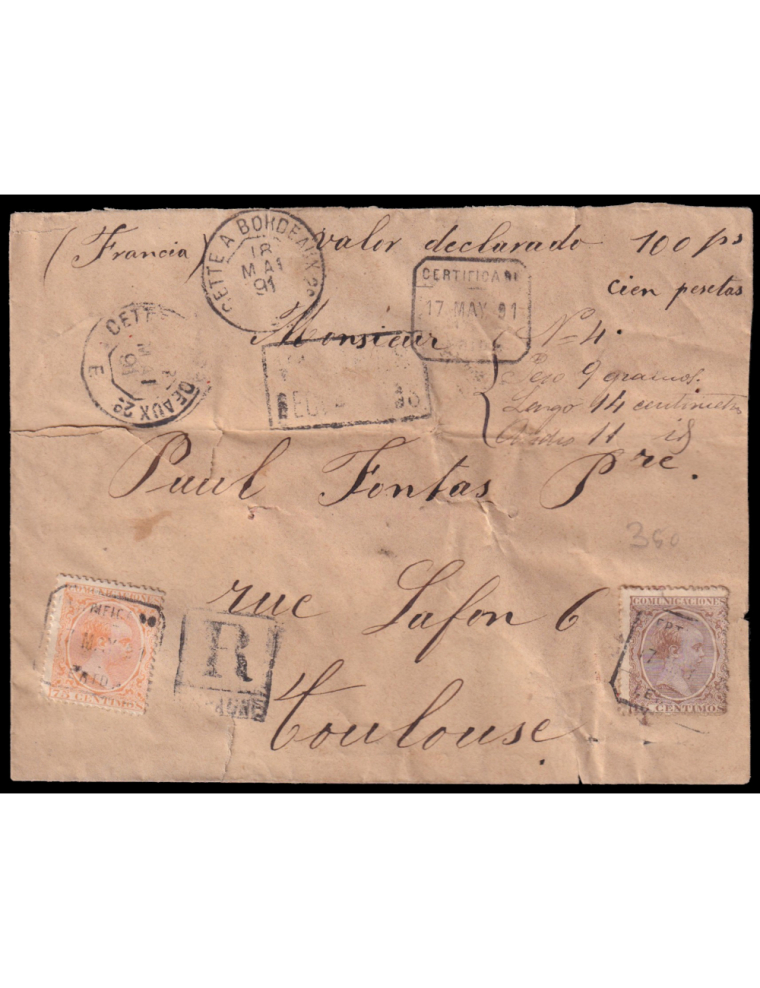 (Francia) valor declarado 100 ps
cien pesetas
CETTE A BORDEAUX 2º
18
MAI
91
CERTIFICADO
17 MAY 91
CETTE
BORDEAUX 2º
MAI
91
E
Monsieur
Nº 4.
Peso 9 gramos.
Largo 14 centimetros
11 id
Paul Fontas Pre.
350
rue Lafon 6
Toulouse
COMUNICACIONES
75 CENTIMOS
R
COMUNICACIONES
CENTIMOS